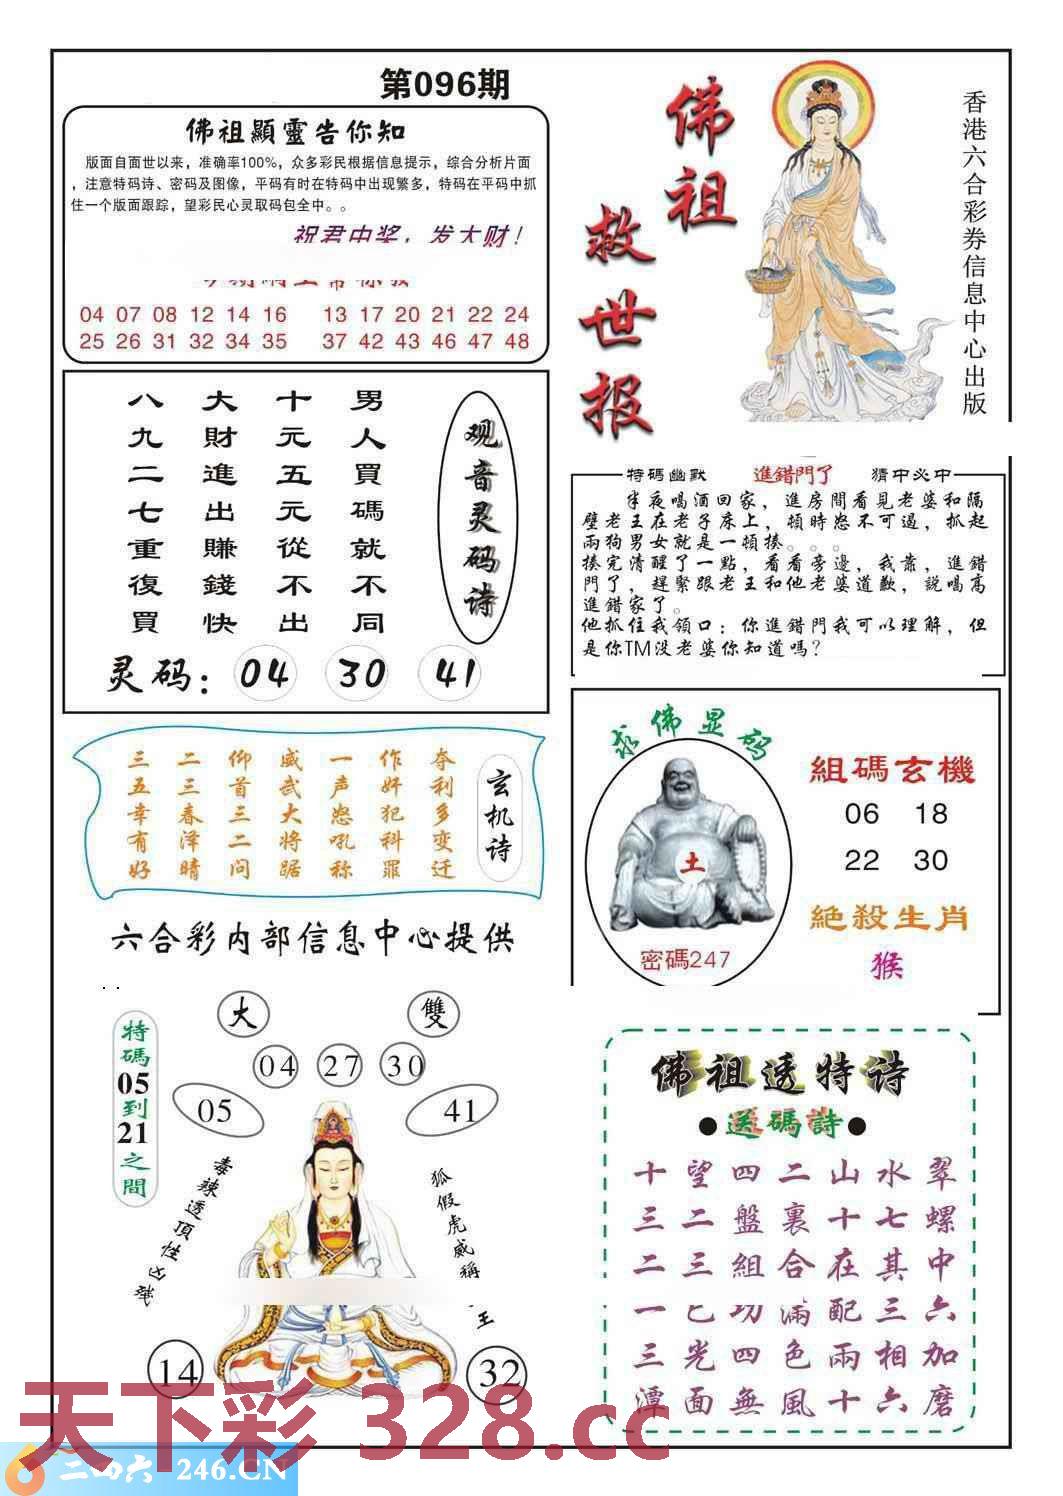 第096期
佛祖顯靈告你知
版面自面世以来，准确率100%，众多彩民根据信息提示，综合分析片面
，注意特码诗、密码及图像，平码有时在特码中出现繁多，特码在平码中抓
住一个版面跟踪，望彩民心灵取码包全中。。
祝君中奖，发大财！
04 07 08 12 14 16 13 17 20 21 22 24
25 26 31 32 34 35 37 42 43 46 47 48
佛祖
救世报
香港六合彩券信息中心出版
观音灵码诗
男人買碼就不同
十元五元從不出
大財進出賺錢快
八九二七重復買
灵码：04 30 41
特碼幽默 進錯門了 猜中必中
半夜喝酒回家，進房間看見老婆和隔
壁老王在老子床上，頓時怒不可遏，抓起
兩狗男女就是一頓揍。。。
揍完清醒了一點，看看旁邊，我靠，進錯
門了，趕緊跟老王和他老婆道歉，説喝高
進錯家了。
他抓住我領口：你進錯門我可以理解，但
是你TM没老婆你知道嗎？
玄机诗
夺利多变迁
作奸犯科罪
一声怒吼称
威武大将踞
仰首三二问
二三春泽晴
三五幸有好
六合彩内部信息中心提供
求佛显码
土
密碼247
組碼玄機
06 18
22 30
絶殺生肖
猴
特碼05到21之間
大 雙
04 27 30
05 41
毒辣透頂性凶残
狐假虎威稱
王
14 32
佛祖透特诗
●送碼詩●
翠螺中六加磨
水七其三相六
山十在配兩十
二裏合滿色風
四盤組功四無
望二三
光面
十三二一三潭
天下彩 328.cc
二四六 246.CN